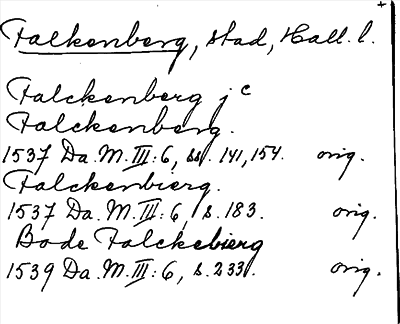 Falkenberg, stad, Hall. l.
Falckenberg j c
Falckenberg.
1537 Da. M. III: 6, ss. 141, 154. orig.
Falckenbierg.
1537 Da. M. III: 6, s. 183. orig.
Bode Falckebierg
1539 Da. M. III: 6, s. 233. orig.